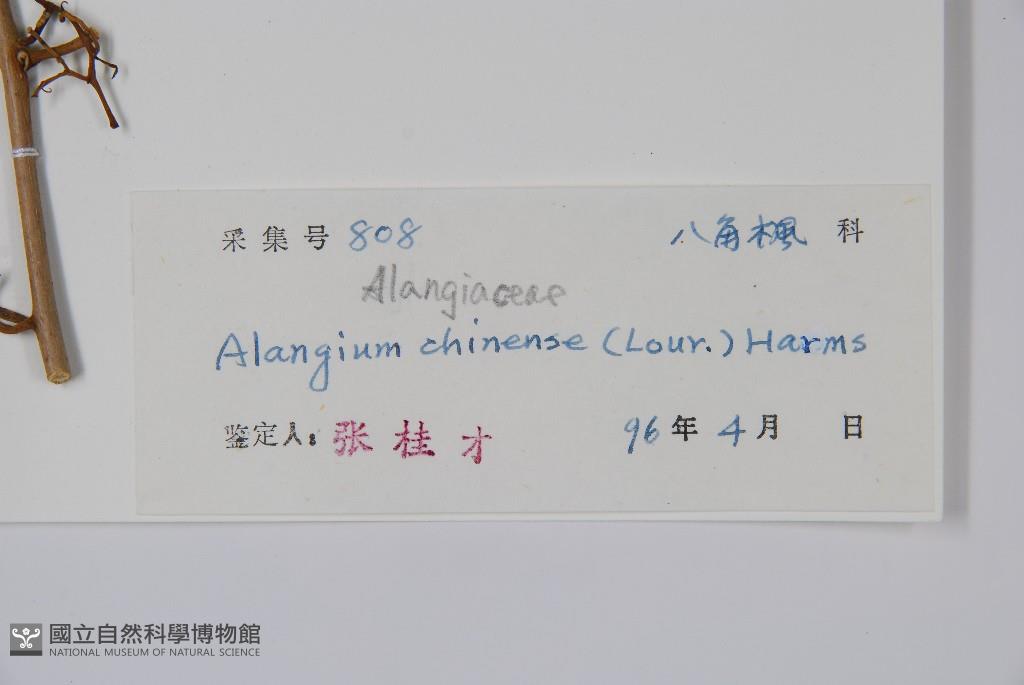 采集号 808 八角楓 科
Alangiaceae
Alangium chinense (Lour.) Harms
鉴定人: 张桂才 96年4月 日
國立自然科學博物館
NATIONAL MUSEUM OF NATURAL SCIENCE